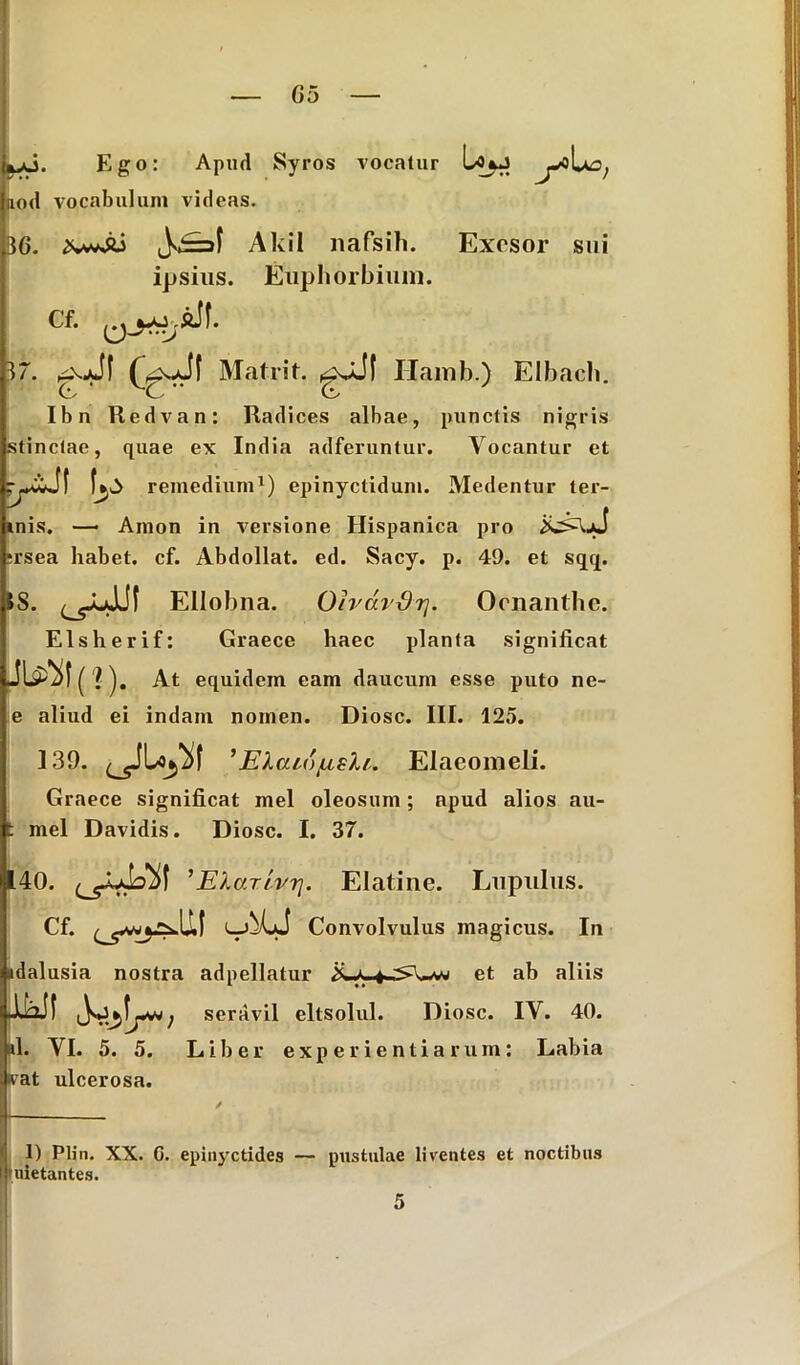 — 65 —
Ego: Apud Syros vocatur
nod vocabulum videas.
36. نفسه Akil nafsih. Excsor sui
ipsius. Euphorbium.
Cf.
37. Matrit. Hamb.) Elbach.
Ibn Redvan: Radices albae, punctis nigris
stinctae, quae ex India adferuntur. Vocantur et
remedium¹) epinyctidum. Medentur ter-
nis. — Amon in versione Hispanica pro
ersea habet. cf. Abdollat. ed. Sacy. p. 49. et sqq.
38. Ellobna. Οἰνάνθη. Oenanthe.
Elsherif: Graece haec planta significat
(?). At equidem eam daucum esse puto ne-
e aliud ei indam nomen. Diosc. III. 125.
139. الاومالي Ἐλαιόμελι. Elaeomeli.
Graece significat mel oleosum; apud alios au-
mel Davidis. Diosc. I. 37.
140. الاطيني Ἐλατίνη. Elatine. Lupulus.
Cf. لبلاب Convolvulus magicus. In
dalusia nostra adpellatur et ab aliis
seràvil eltsolul. Diosc. IV. 40.
l. VI. 5. 5. Liber experientiarum: Labia
vat ulcerosa.
1) Plin. XX. 6. epinyctides — pustulae liventes et noctibus
uietantes.
5